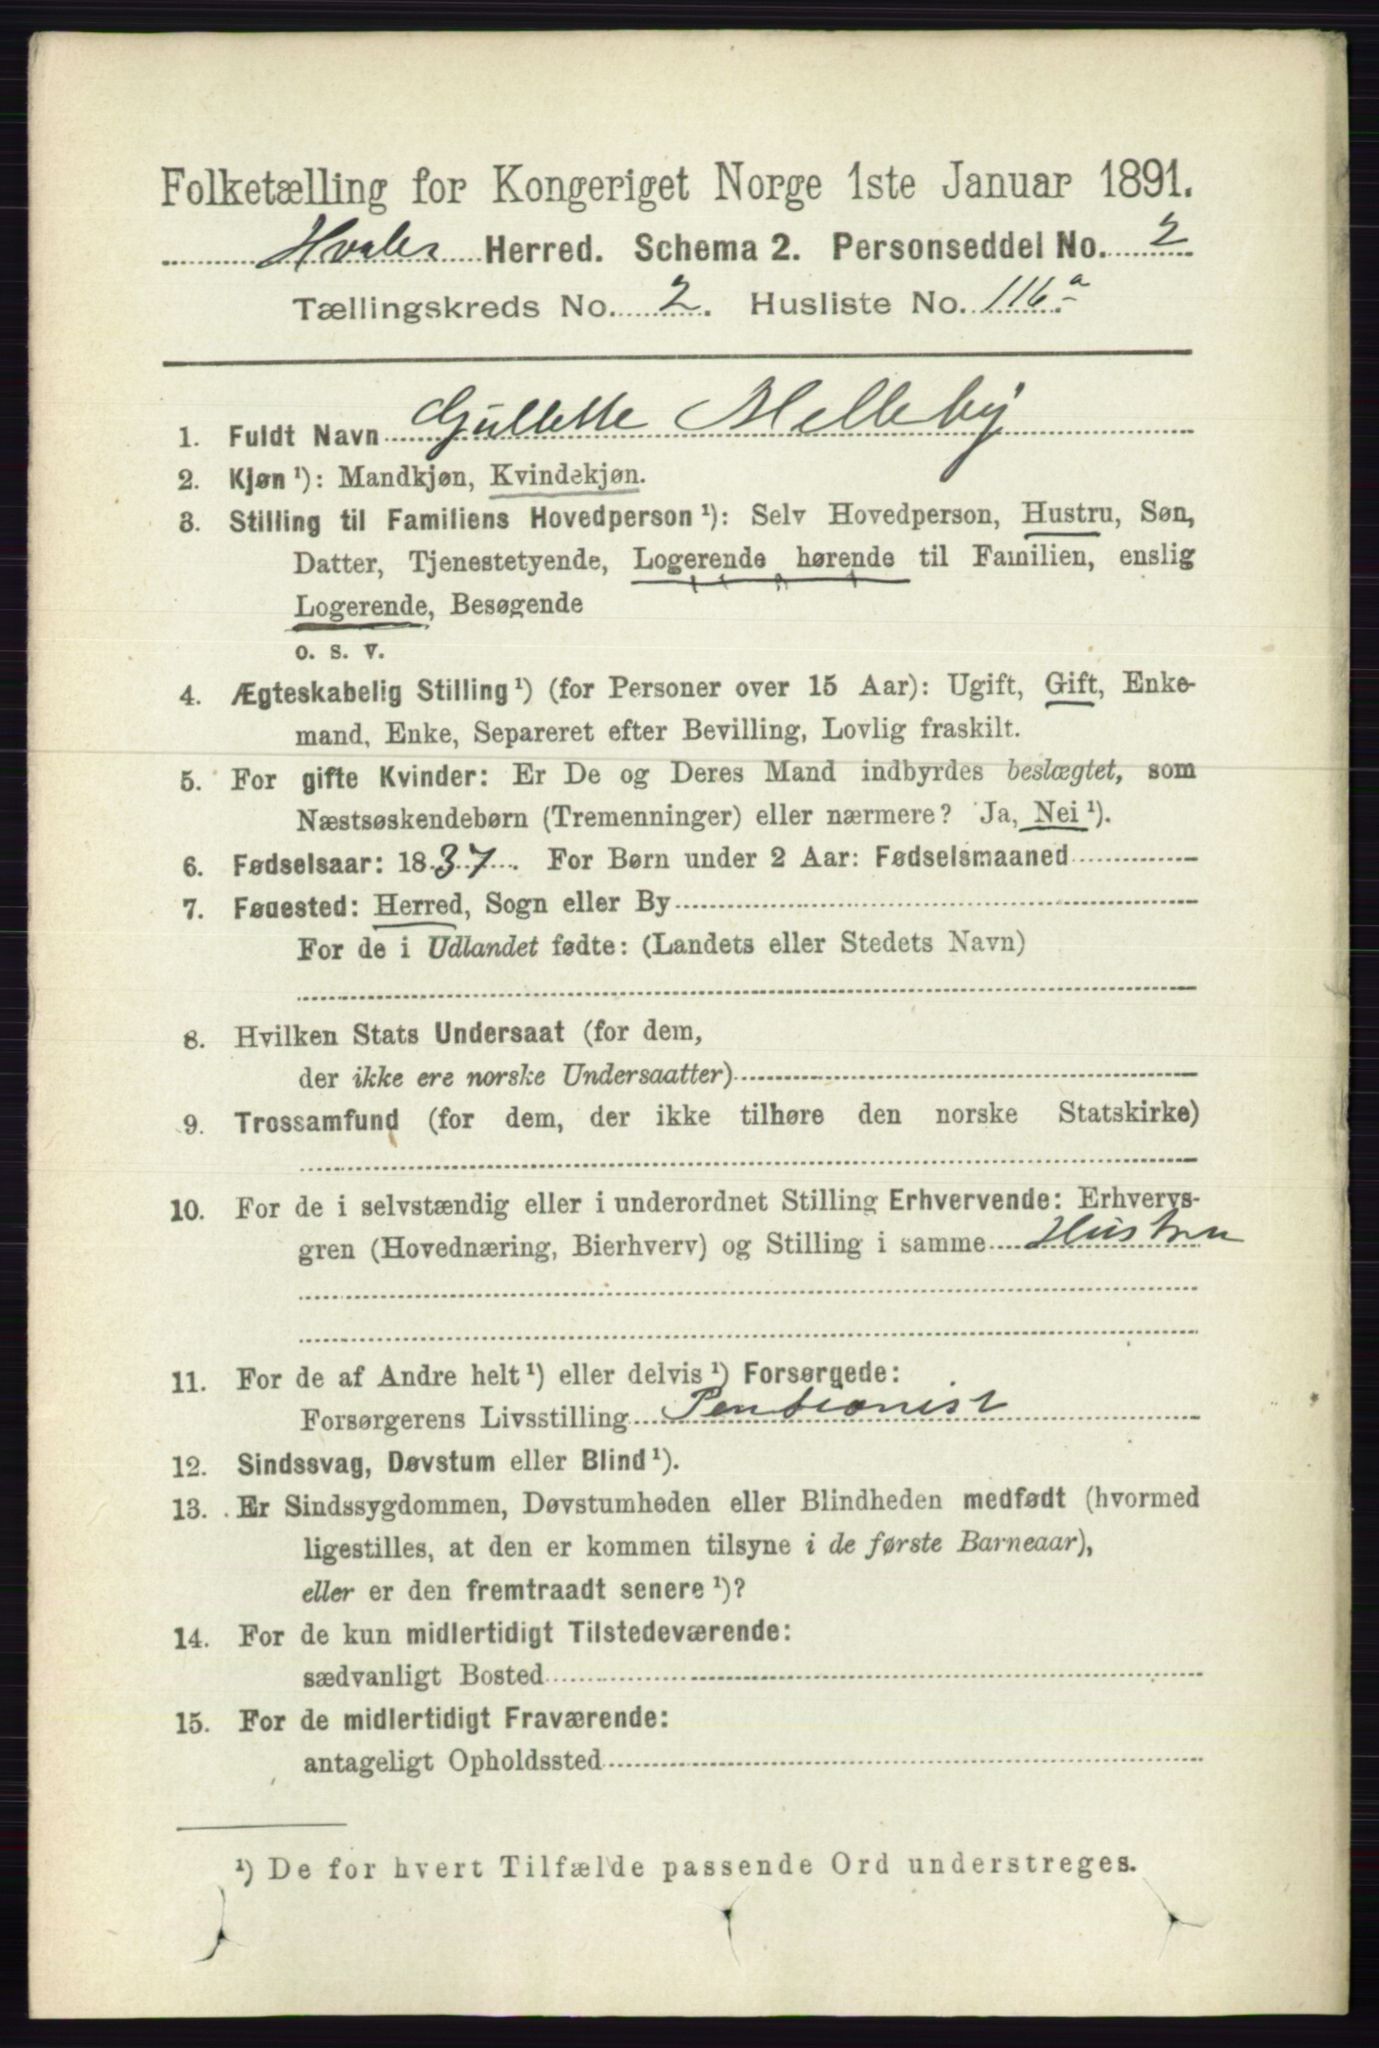 Folketælling for Kongeriget Norge 1ste Januar 1891.
Hvaler Herred. Schema 2. Personseddel No. 2
Tællingskreds No. 2. Husliste No. 116 a
1. Fuldt Navn Gullette Melleby
2. Kjøn ¹): Mandkjøn, Kvindekjøn.
3. Stilling til Familiens Hovedperson ¹): Selv Hovedperson, Hustru, Søn,
Datter, Tjenestetyende, Logerende hørende til Familien, enslig
Logerende, Besøgende
o. s. v.
4. Ægteskabelig Stilling ¹) (for Personer over 15 Aar): Ugift, Gift, Enke-
mand, Enke, Separeret efter Bevilling, Lovlig fraskilt.
5. For gifte Kvinder: Er De og Deres Mand indbyrdes beslægtet, som
Næstsøskendebørn (Tremenninger) eller nærmere? Ja, Nei ¹).
6. Fødselsaar: 1837. For Børn under 2 Aar: Fødselsmaaned
7. Føuested: Herred, Sogn eller By
For de i Udlandet fødte: (Landets eller Stedets Navn)
8. Hvilken Stats Undersaat (for dem,
der ikke ere norske Undersaatter)
9. Trossamfund (for dem, der ikke tilhøre den norske Statskirke)
10. For de i selvstændig eller i underordnet Stilling Erhvervende: Erhvervs-
gren (Hovednæring, Bierhverv) og Stilling i samme Hustru
11. For de af Andre helt ¹) eller delvis ¹) Forsørgede:
Forsørgerens Livsstilling Pensionist
12. Sindssvag, Døvstum eller Blind ¹).
13. Er Sindssygdommen, Døvstumheden eller Blindheden medfødt (hvormed
ligestilles, at den er kommen tilsyne i de første Barneaar),
eller er den fremtraadt senere ¹)?
14. For de kun midlertidigt Tilstedeværende:
sædvanligt Bosted
15. For de midlertidigt Fraværende:
antageligt Opholdssted
¹) De for hvert Tilfælde passende Ord understreges.